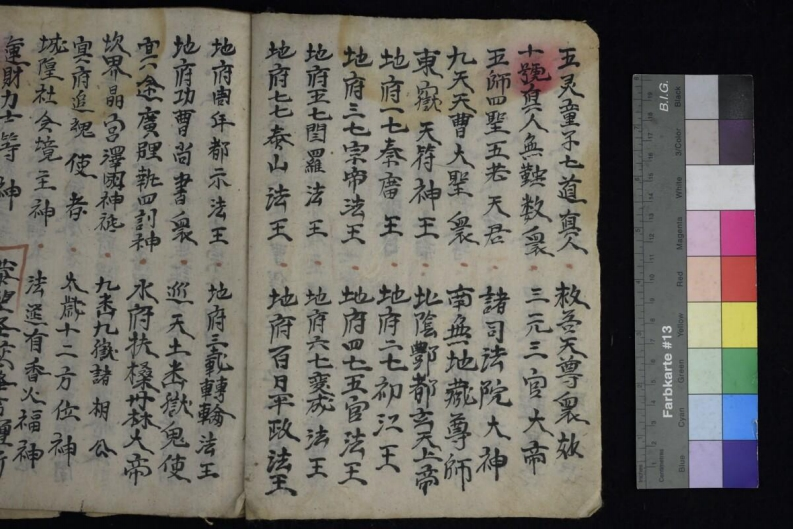 五灵童子七道真人 救苦天尊衆妙
十號真人無鞅数衆 三元三官大帝
五師四聖五老天君 諸司法院大神
九天天曹大聖衆 南無地藏尊師
東嶽天符神王 北陰酆都玄天上帝
地府一七秦廣王 地府二七初江王
地府三七宗帝法王 地府四七五官法王
地府五七閻羅法王 地府六七変成法王
地府七七泰山法王 地府百日平政法王
地府周年都市法王 地府三載轉輪法王
地府功曹尚書衆 巡天土 嶽鬼使
冥途廣 四刘神 水府扶桑丹林大帝
坎界晶宮澤國神祇 九 九嶽諸相公
冥府追魂使者 太歲十二方位神
城隍社令境主神 法 有香火福神
運財力士等神
Farbkarte #13
B.I.G.
Centimetres
Blue
Cyan
Green
Yellow
Red
Magenta
White
3/Color
Black